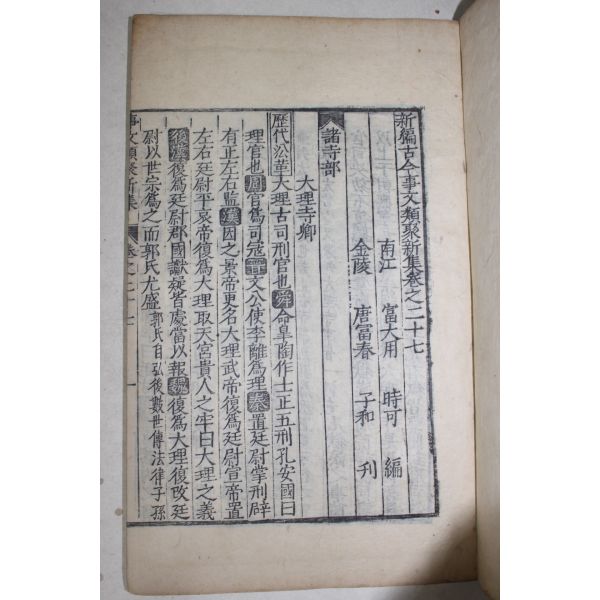 新編古今事文類聚新集卷之二十七
南江 富大用 時可 編
金陵 唐富春 子和 刋
諸寺部
大理寺卿
歷代沿革大理古司刑官也舜命皐陶作士正五刑孔安國曰
理官也周官爲司冦晉文公使李離爲理秦置廷尉掌刑辟
有正左右監漢因之景帝更名大理武帝復爲廷尉宣帝置
左右廷尉平哀帝復爲大理取天宮貴人之牢曰大理之義
後漢復爲廷尉郡國讞疑皆處當以報魏復爲大理復改廷
尉以世宗爲之而郭氏尤盛郭氏自弘後數世傳法律子孫
事文類聚新集 卷之二十七 一